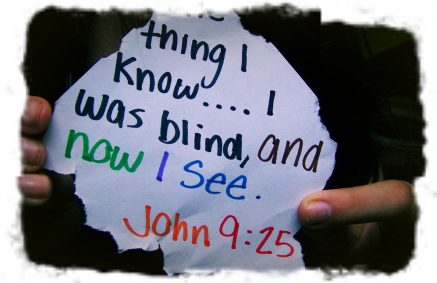 thing I
know.... I
was blind, and
now I see.
John 9:25